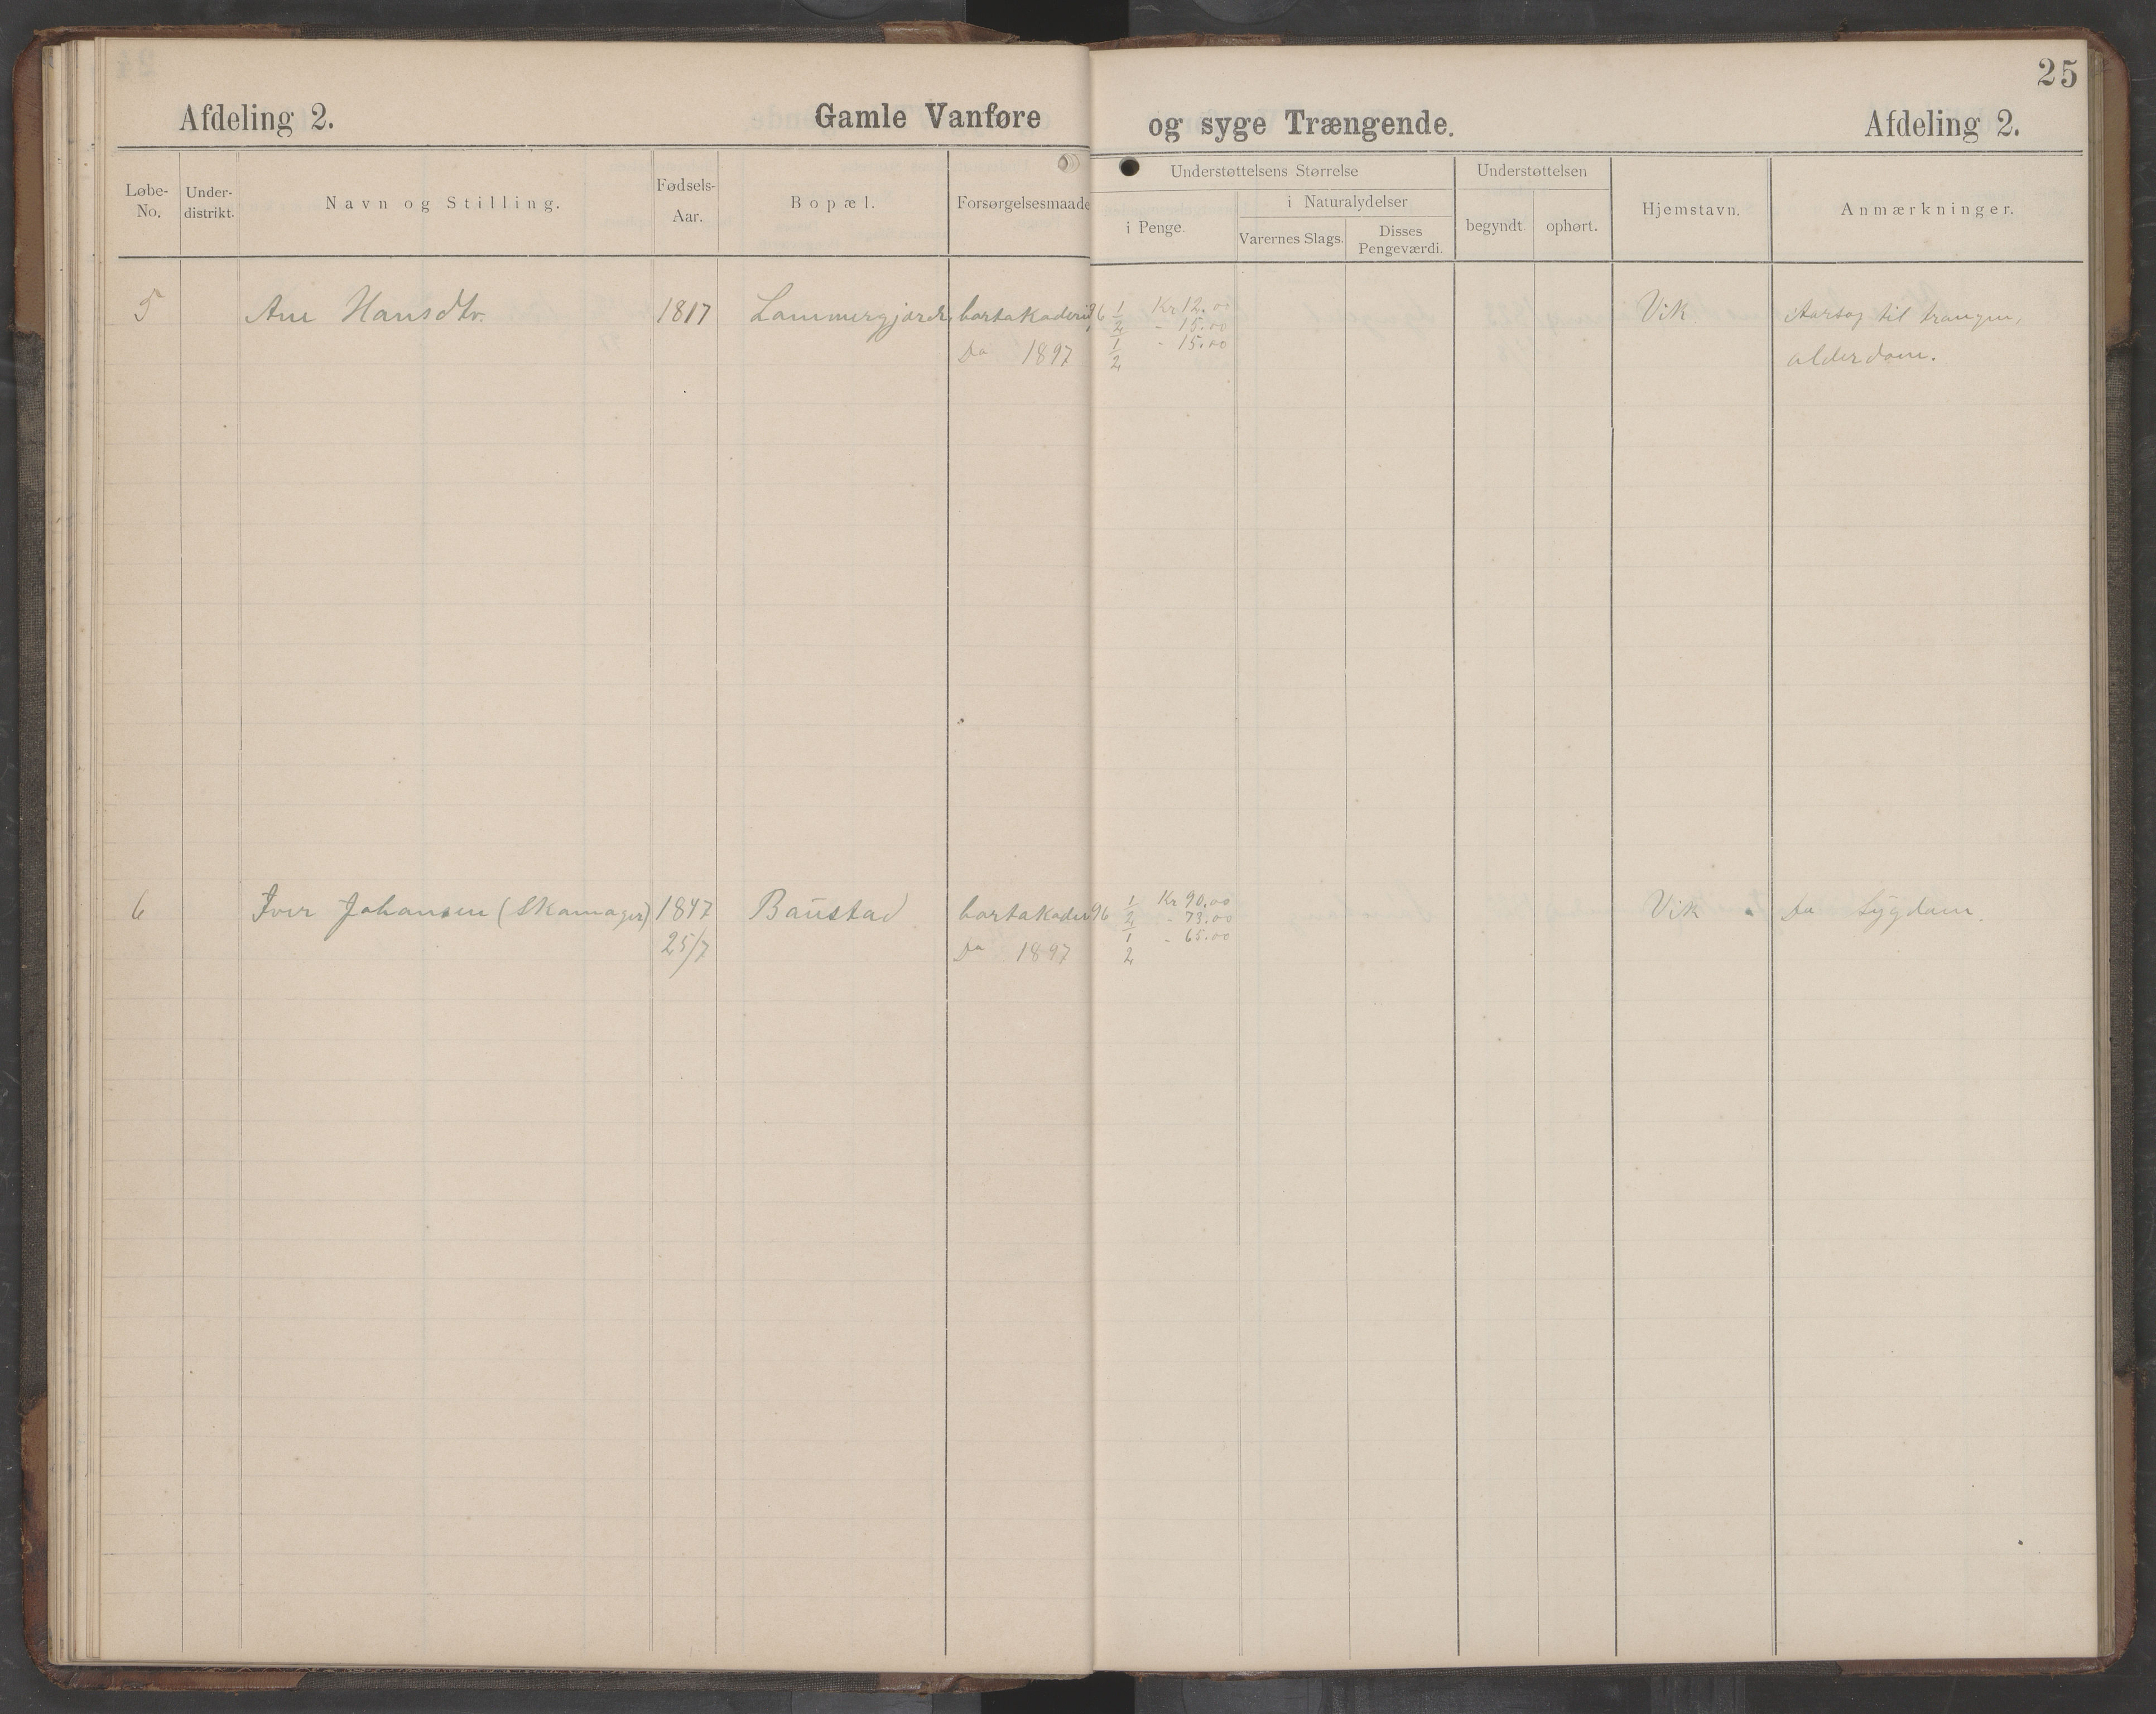 25
Afdeling 2. Gamle Vanføre og syge Trængende. Afdeling 2.
Løbe-No. Under-distrikt. Navn og Stilling. Fødsels-Aar. Bopæl. Forsørgelsesmaade Understøttelsens Størrelse i Penge. i Naturalydelser Varernes Slags. Disses Pengeværdi. Understøttelsen begyndt. ophørt. Hjemstavn. Anmærkninger.
5 Ane Hansdtr. 1817 96 1/2 Kr 12.00 Vik Aarsag til trangen,
- 15.00
Do 1897 1/2 - 15.00 alderdom.
6 Iver Johansen (Skomager) 1847 Baustad 96 1/2 Kr 90.00 Vik Do Sygdom.
- 73.00
25/7 Do 1897 1/2 - 65.00